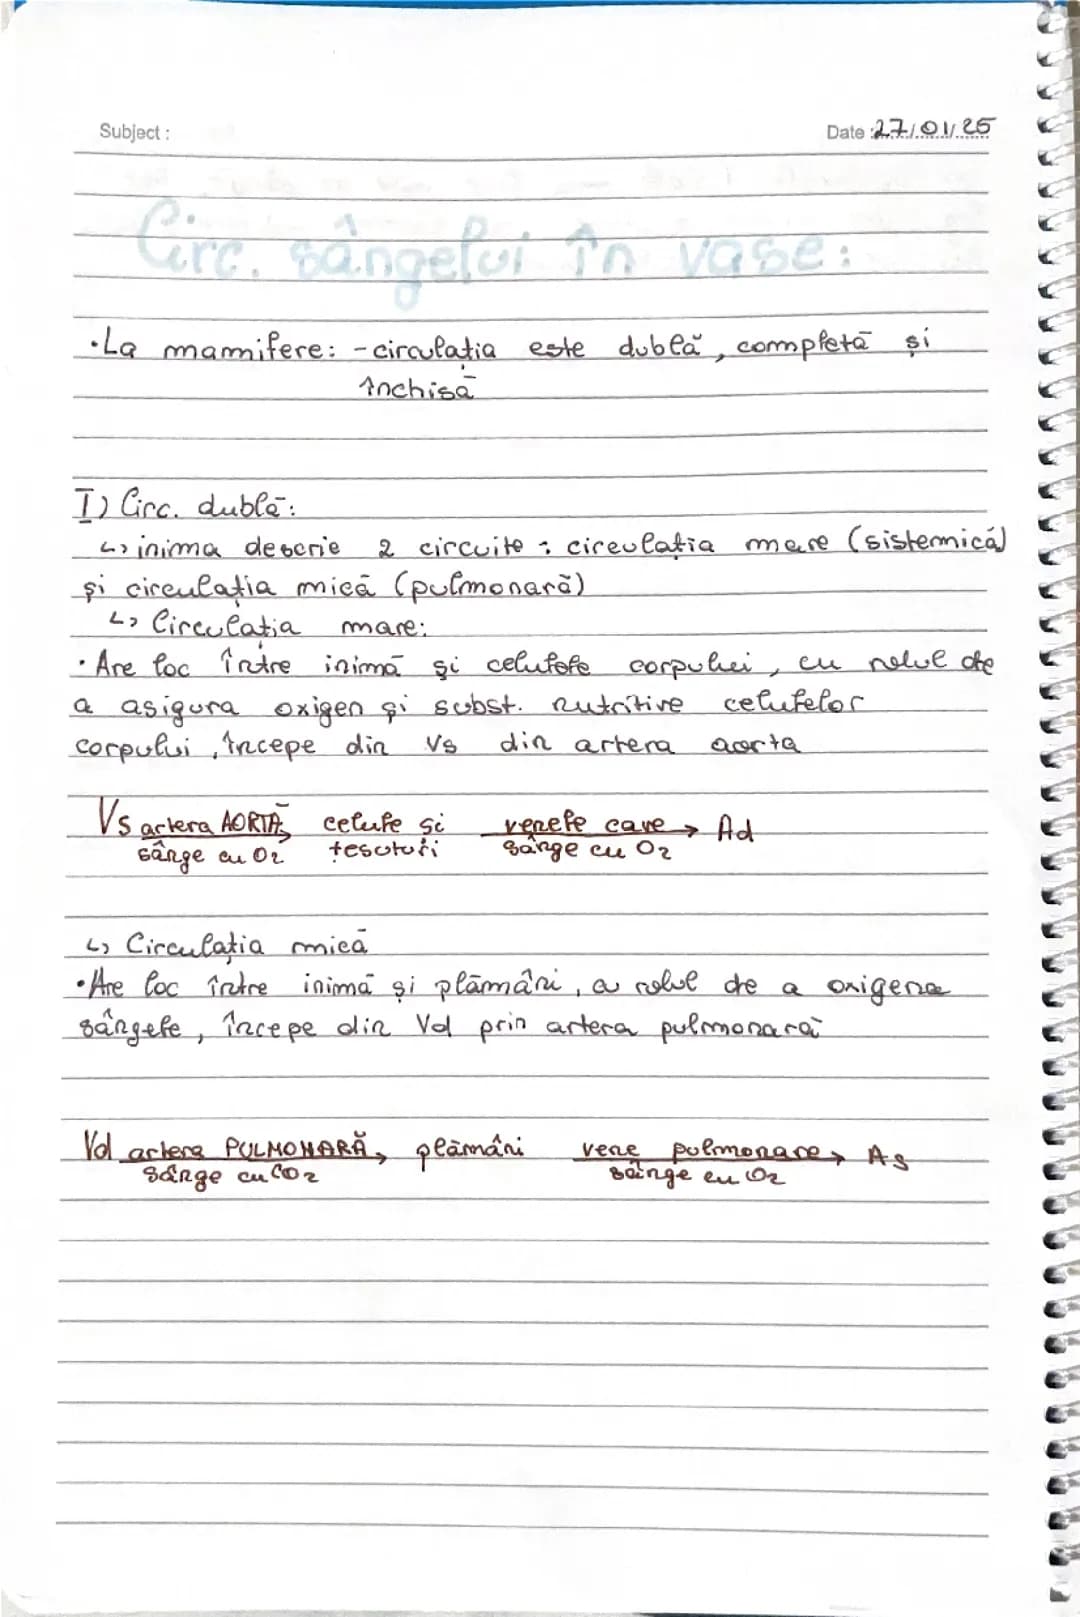 Subject :
Date : 27/01/25
Circ. sângelui în vase:
•La mamifere: - circulația este dublă, completă și
închisă
I) Circ. dublă:
↳ inima descrie 2 circuite : circulația mare (sistemică)
și circulația mică (pulmonară)
↳ Circulația mare:
• Are loc între inimă și celulele corpului, cu rolul de
a asigura oxigen și subst. nutritive celulelor
corpului, începe din Vs din artera aorta
Vs artera AORTĂ → celule și venele cave → Ad
sânge cu O2 țesuturi sânge cu O2
↳ Circulația mică
•Are loc între inimă și plămâni, a rolul de a oxigena
sângele, începe din Vd prin artera pulmonară
Vd artera PULMONARĂ → plămâni vene pulmonare → As
sânge cu CO2 sânge cu O2